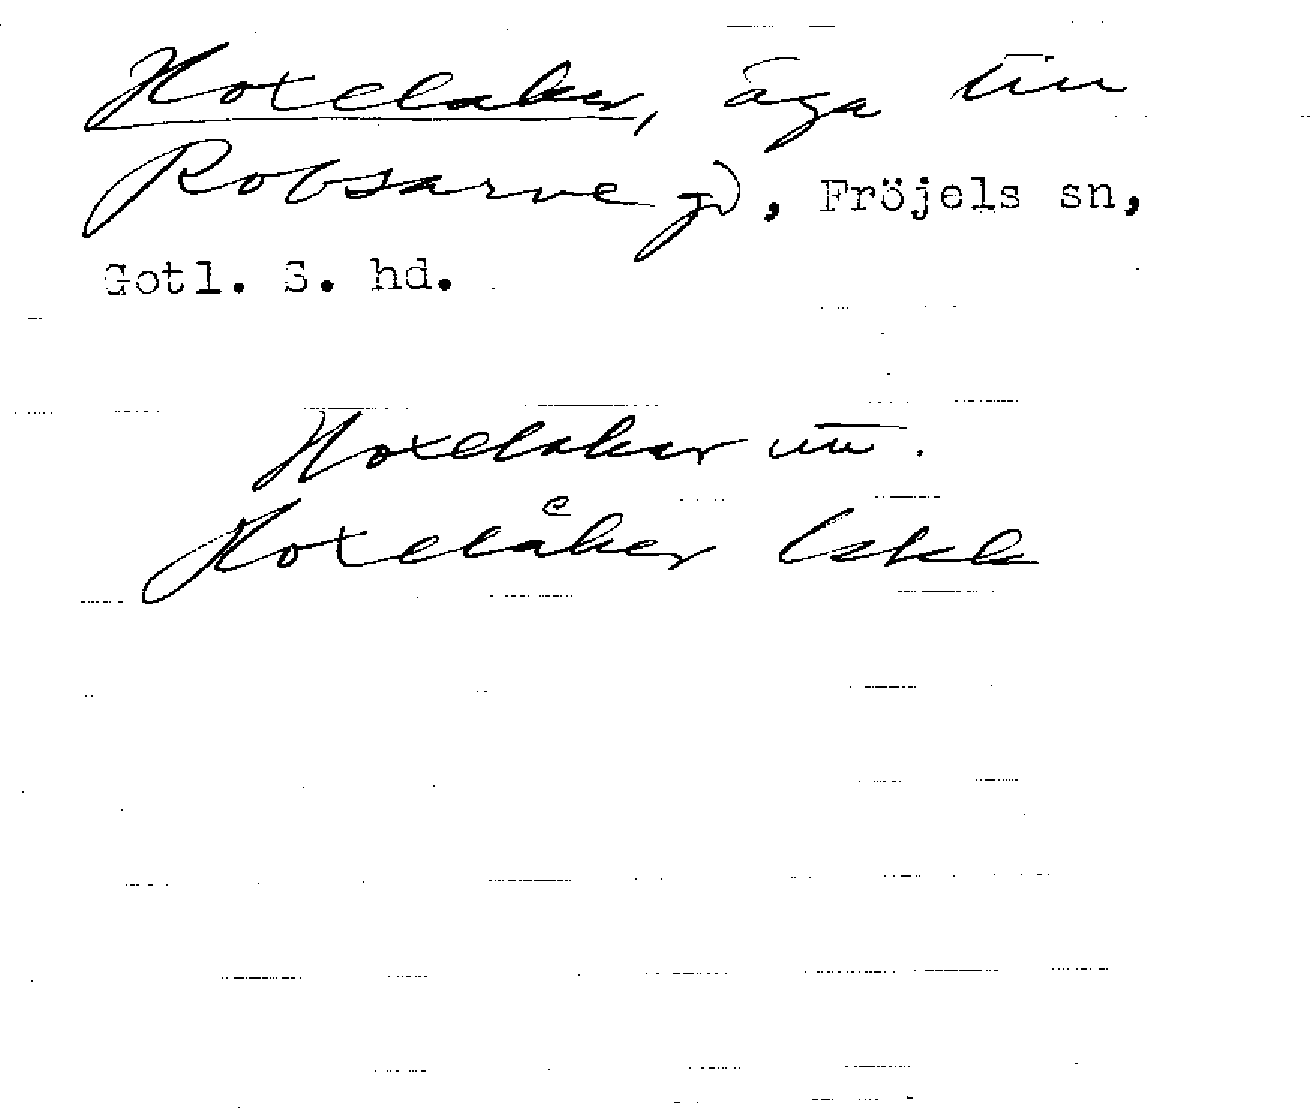 Hoxelaker, äga till
Robsarve gd, Fröjels sn,
Gotl. S. hd.
Hoxelakar utt.
Hoxelåker Lskk